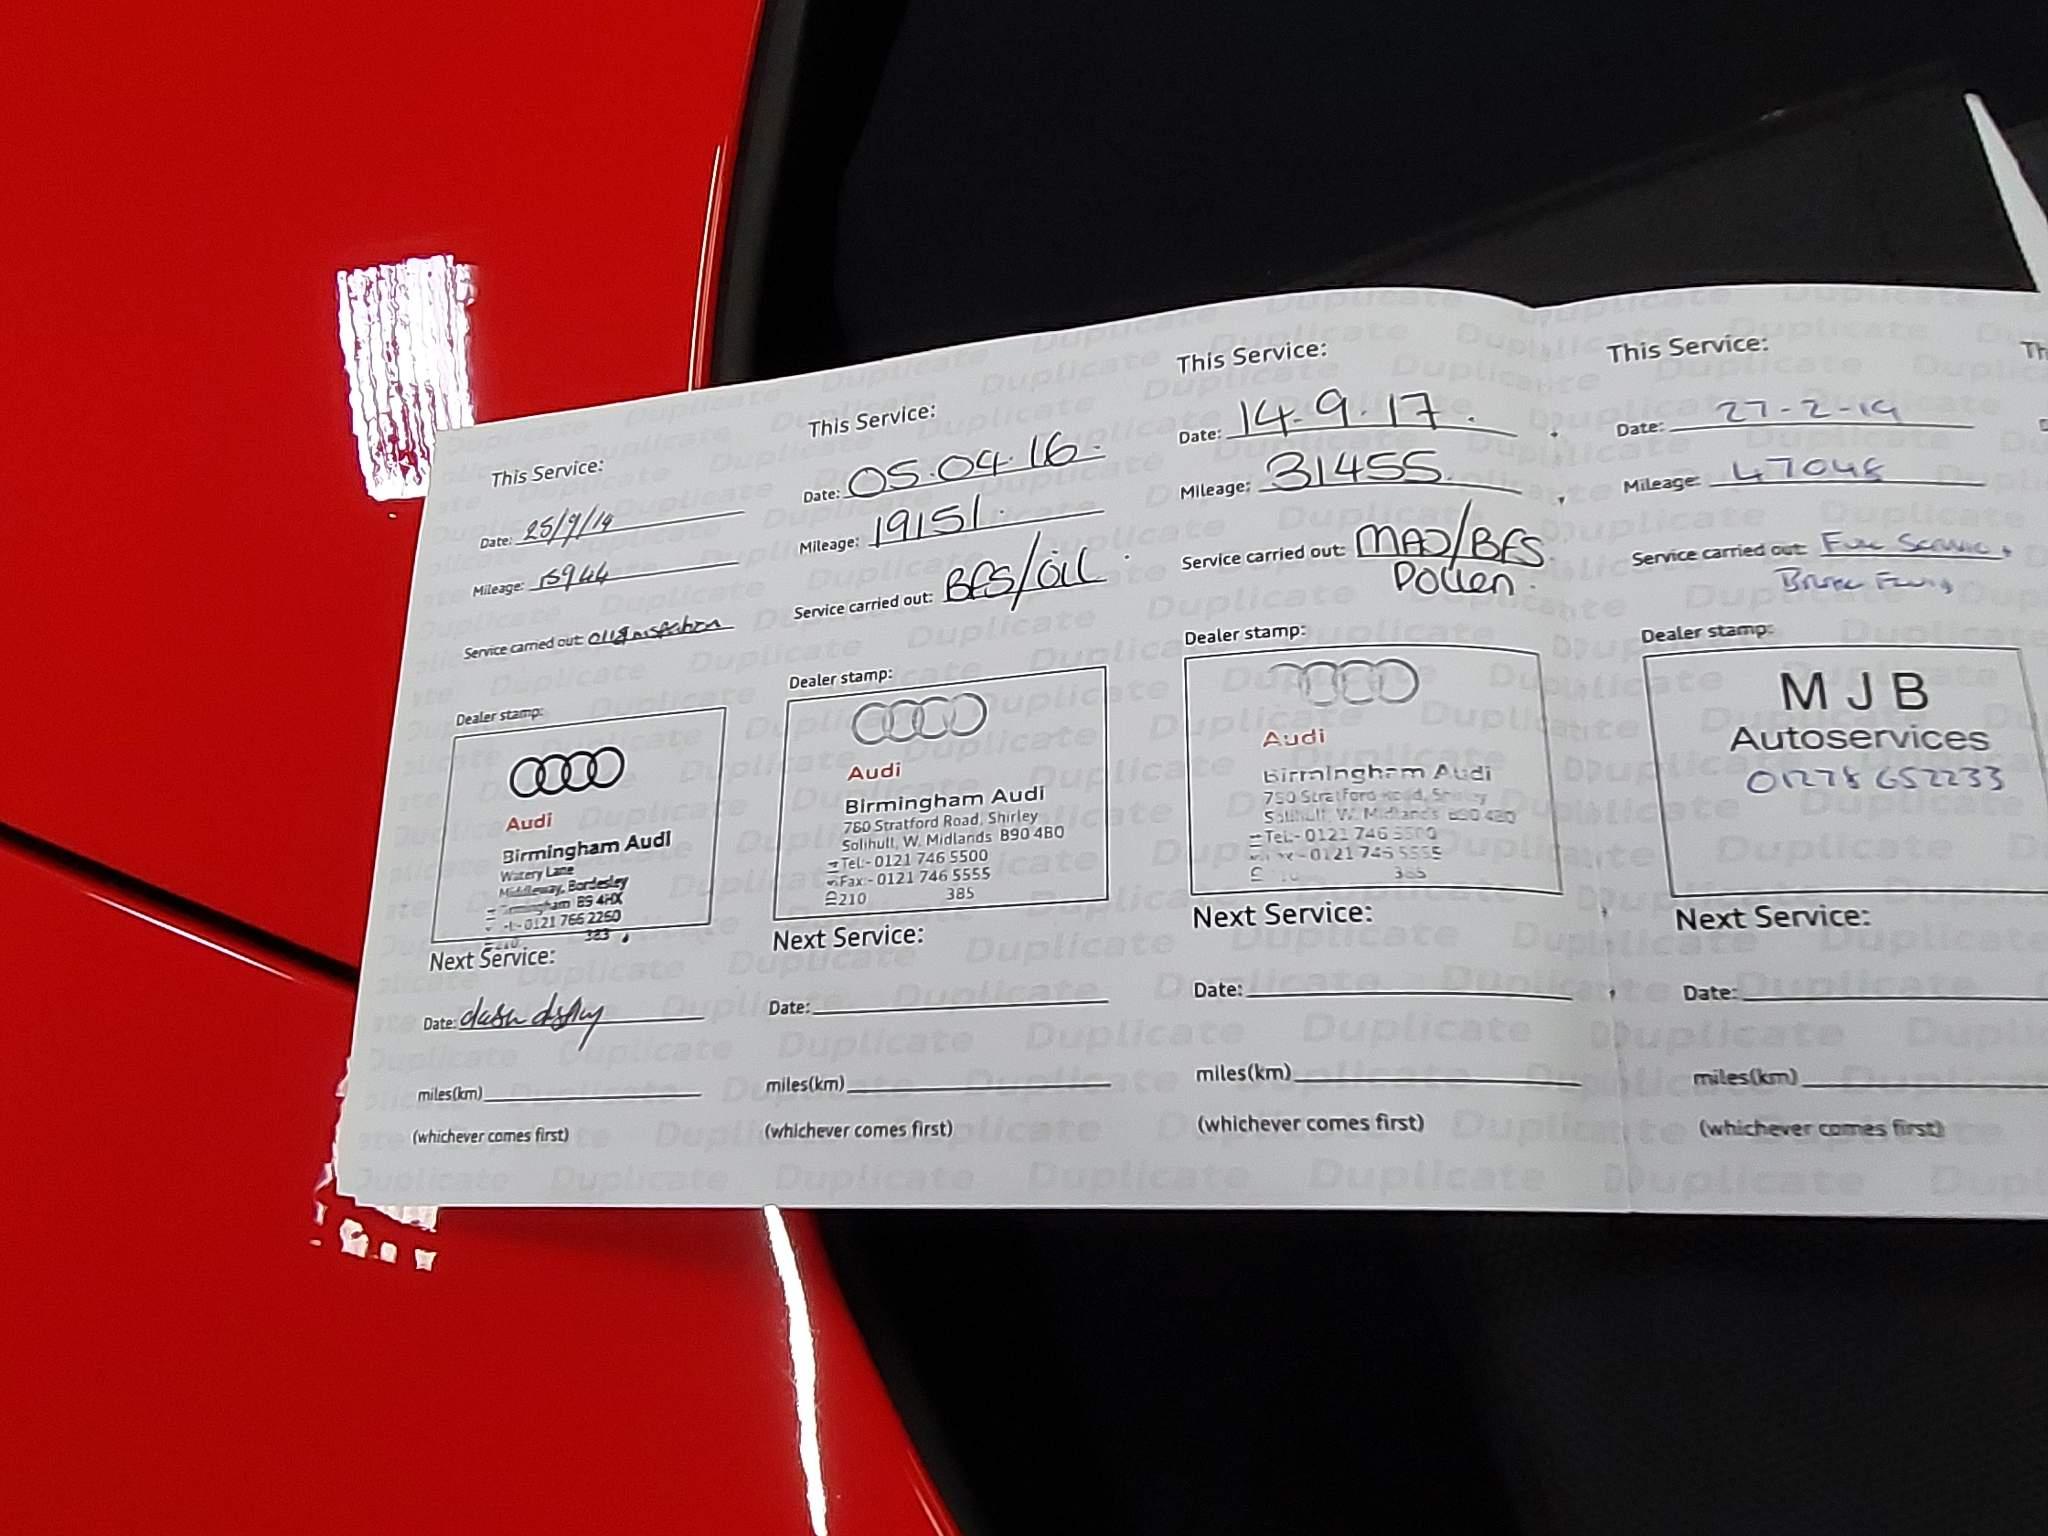 This Service:
Date: 25/9/14
Mileage: 15944
Service carried out: Oil & inspection
Dealer stamp:
Audi
Birmingham Audi
Watery Lane
Middleway, Bordesley
Birmingham B9 4HX
0121 766 2260
383
Next Service:
Date: dash display
miles(km)
(whichever comes first)
This Service:
Date: 05.04.16.
Mileage: 19151.
Service carried out: BFS/OIL
Dealer stamp:
Audi
Birmingham Audi
760 Stratford Road, Shirley
Solihull, W. Midlands B90 4BD
Tel:- 0121 746 5500
Fax:- 0121 746 5555
210 385
Next Service:
Date:
miles(km)
(whichever comes first)
This Service:
Date: 14.9.17.
Mileage: 31455.
Service carried out: MAJ/BFS.
Pollen.
Dealer stamp:
Audi
Birmingham Audi
Stratford Road, Shirley
Solihull, W. Midlands
Tel:- 0121 746 5500
0121 746 5555
385
Next Service:
Date:
miles(km)
(whichever comes first)
This Service:
Date: 27-2-19
Mileage: 47048
Service carried out: Full Service +
Dealer stamp:
M J B
Autoservices
01278 652233
Next Service:
Date:
miles(km)
(whichever comes first)
Duplicate